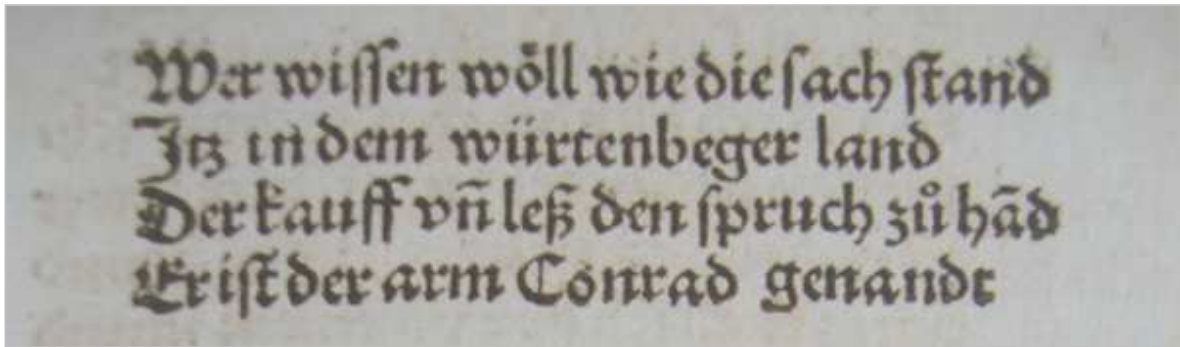 Wer wissen wöll wie die sach stand
Jtz in dem würtenbeger land
Der kauff vñ leß den spruch zů hãd
Er ist der arm Conrad genandt